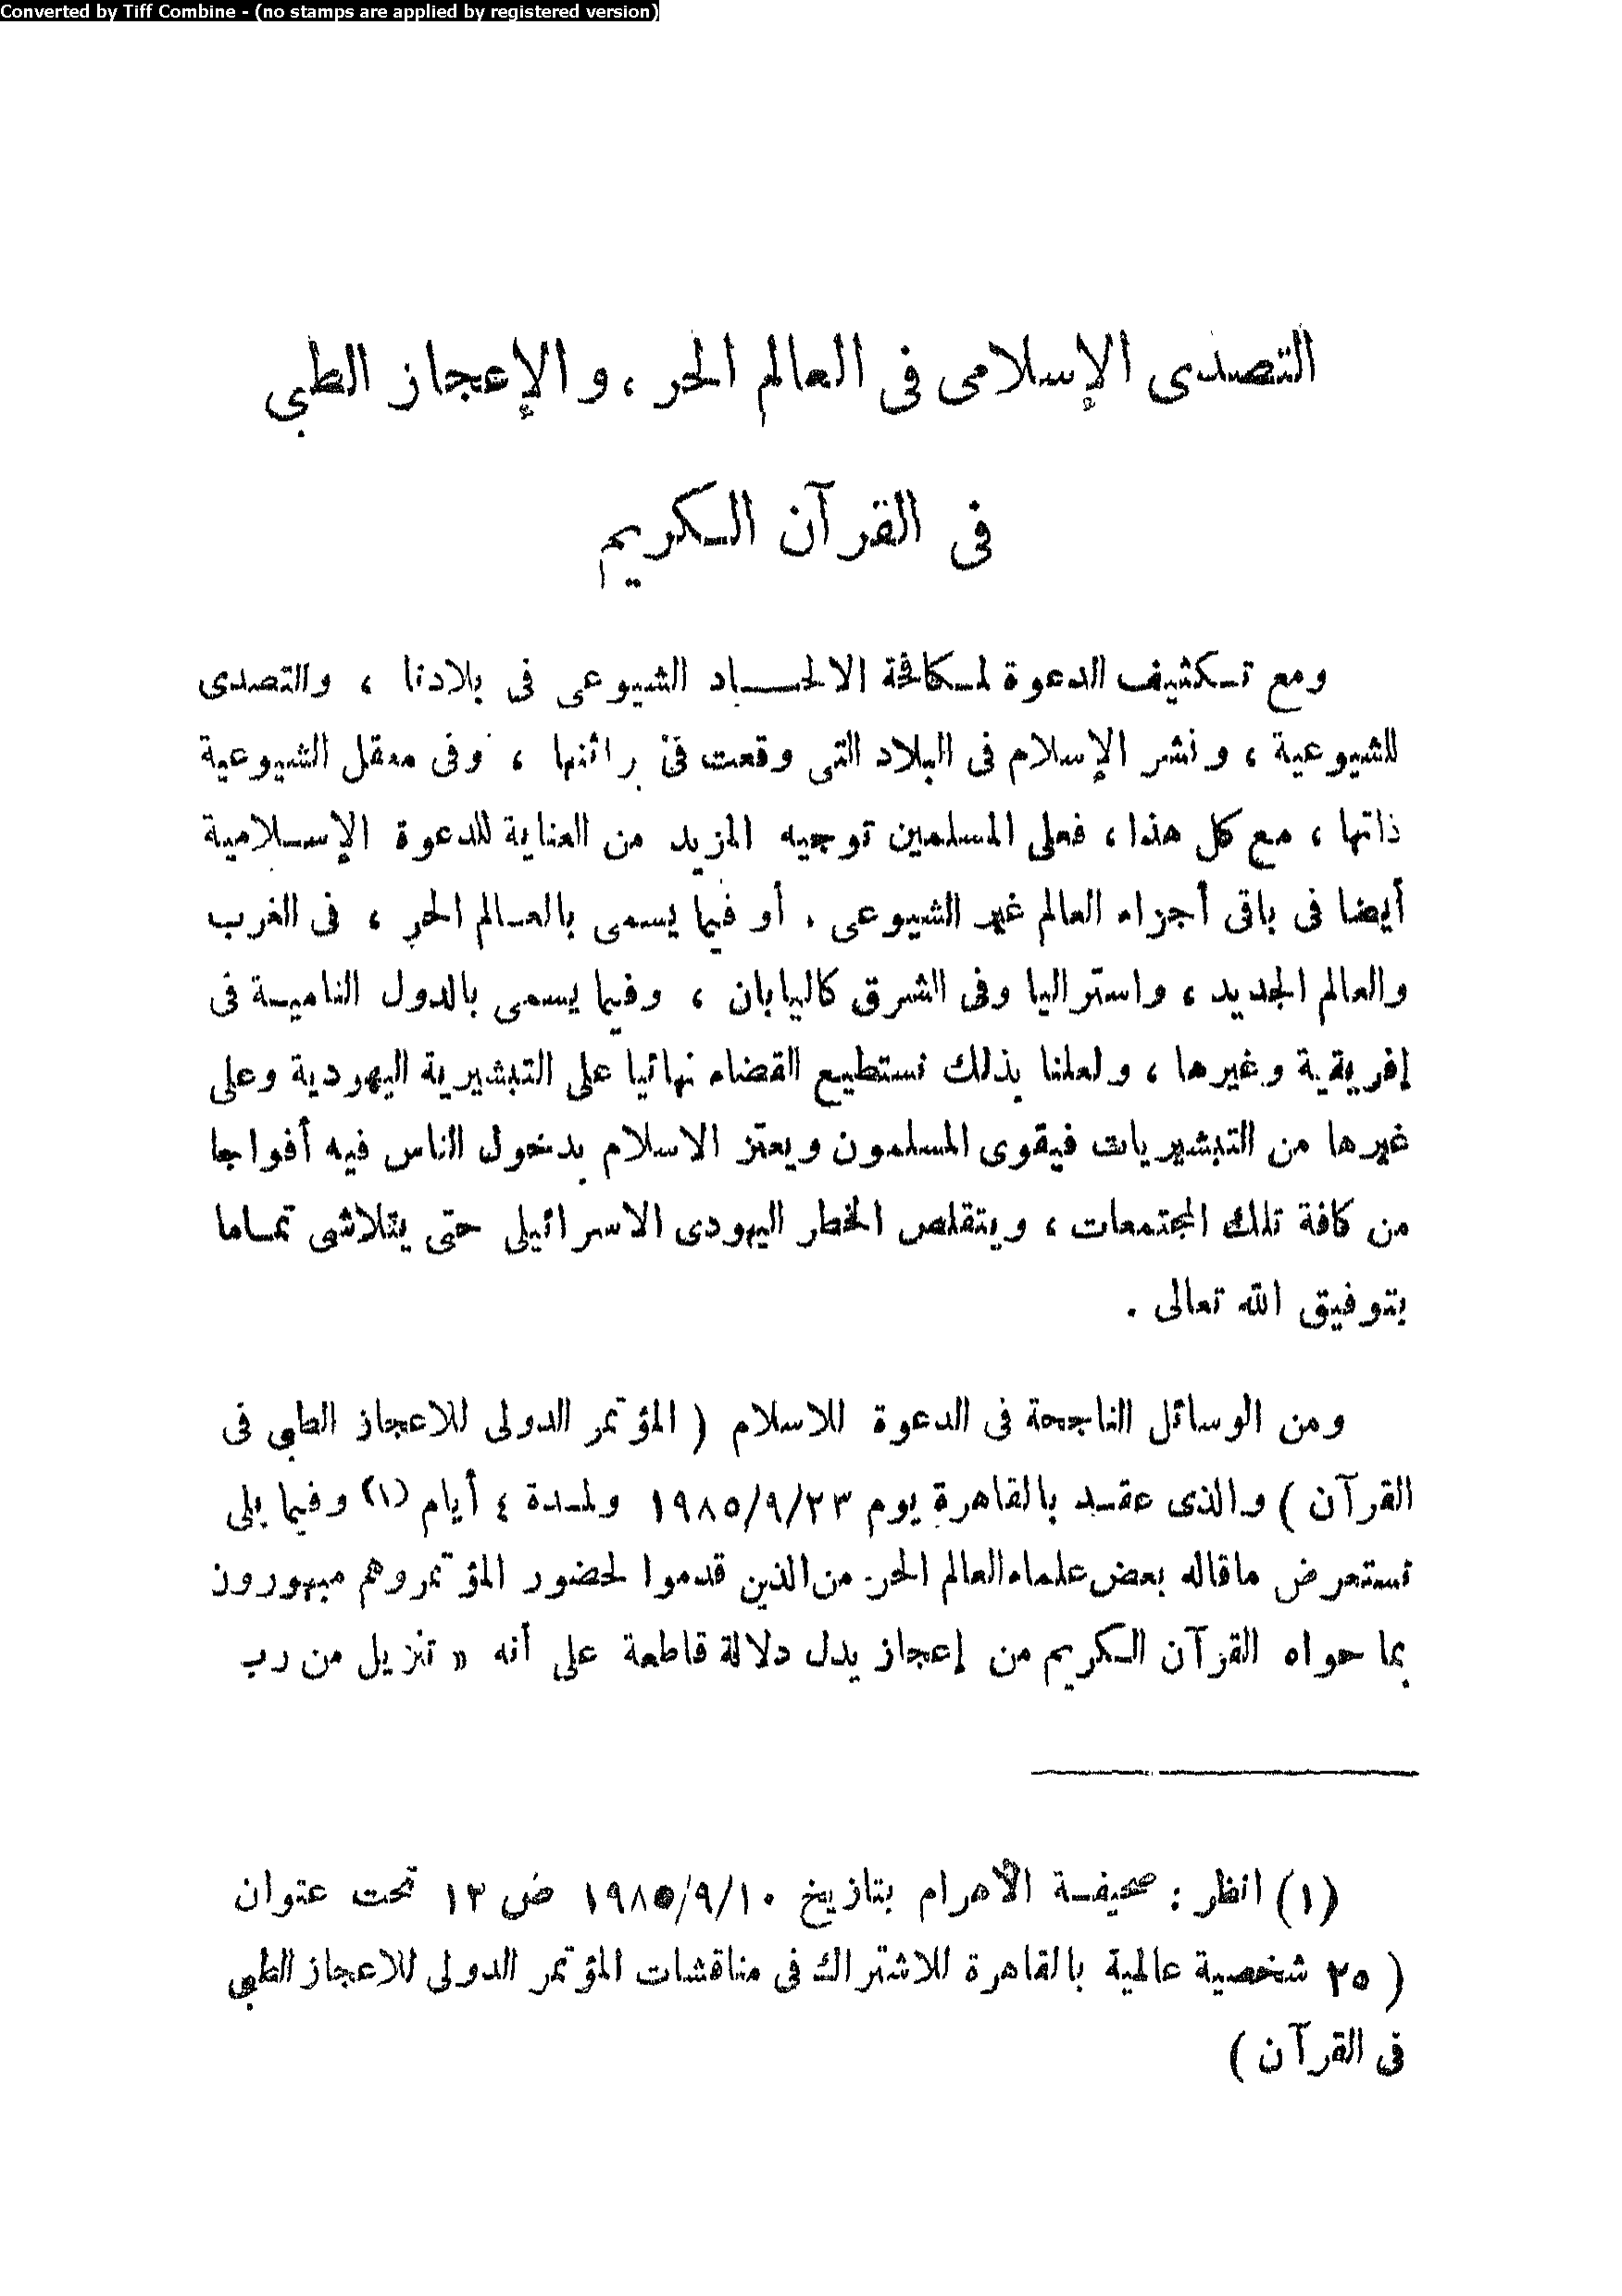 Converted by Tiff Combine - (no stamps are applied by registered version)
التصدى الإسلامى فى العالم الحر ، والإعجاز الطبى
فى القرآن الكريم
ومع تكثيف الدعوة لمكافحة الالحاد الشيوعى فى بلادنا ، والتصدى
للشيوعية ، ونشر الإسلام فى البلاد التى وقعت فى براثنها ، وفى معقل الشيوعية
ذاتها ، مع كل هذا ، فعلى المسلمين توجيه المزيد من العناية للدعوة الإسلامية
أيضا فى باقى أجزاء العالم غير الشيوعى . أو فيما يسمى بالعالم الحر ، فى الغرب
والعالم الجديد ، واستراليا وفى الشرق كاليابان ، وفيما يسمى بالدول النامية فى
إفريقية وغيرها ، ولعلنا بذلك نستطيع القضاء نهائيا على التبشيرية اليهودية وعلى
غيرها من التبشيريات فيقوى المسلمون ويعتز الاسلام بدخول الناس فيه أفواجا
من كافة تلك المجتمعات ، ويتقلص الخطر اليهودى الاسرائيلى حتى يتلاشى تماما
بتوفيق الله تعالى .
ومن الوسائل الناجحة فى الدعوة للاسلام ( المؤتمر الدولى للاعجاز الطبى فى
القرآن ) والذى عقد بالقاهرة يوم ١٩٨٥/٩/٢٣ ولمدة ٤ أيام (١) وفيما يلى
نستعرض ماقاله بعض علماء العالم الحر من الذين قدموا لحضور المؤتمر وهم مبهورون
بما حواه القرآن الكريم من إعجاز يدل دلالة قاطعة على أنه « تنزيل من رب
(١) انظر : صحيفة الأهرام بتاريخ ١٩٨٥/٩/١٠ ص ١٣ تحت عنوان
( ٢٥ شخصية عالمية بالقاهرة للاشتراك فى مناقشات المؤتمر الدولى للاعجاز الطبى
فى القرآن )